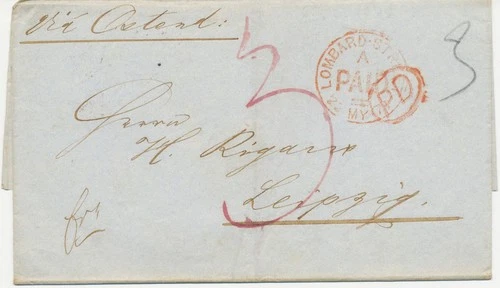 via Ostend:
LOMBARD-ST
A
PAI
MY
PD
3
3
Herrn
H. Rigaw
Leipzig.